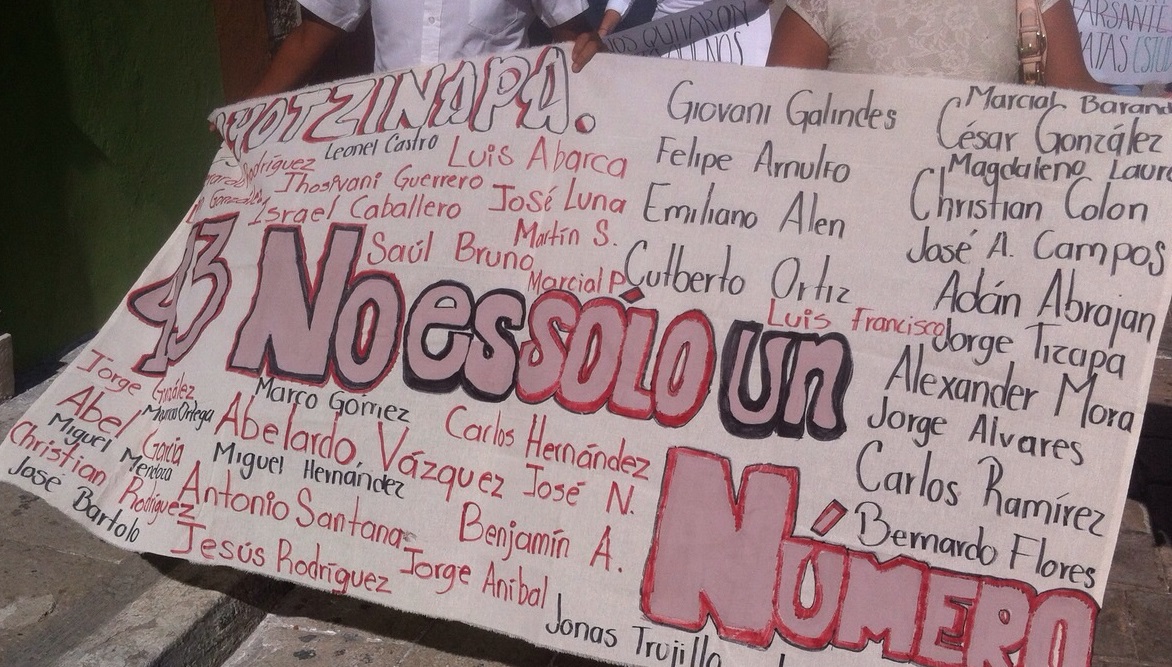 AYOTZINAPA.
Leonel Castro
Rodríguez
Luis Abarca
Jhosivani Guerrero
José Luna
Israel Caballero
Martín S.
Saúl Bruno
Marcial P
Giovani Galindes
Felipe Arnulfo
Emiliano Alen
Cutberto Ortiz
Luis Francisco
Marcial Baran
César González
Magdaleno Laur
Christian Colon
José A. Campos
Adán Abrajan
Jorge Tizapa
Alexander Mora
Jorge Alvares
Carlos Ramírez
Bernardo Flores
43 No es SÓLO un
NÚMERO
Jorge González
Marco Gómez
Carlos Hernández
Abel García
Abelardo Vázquez
José N.
Miguel Mendoza
Miguel Hernández
Christian Rodríguez
Antonio Santana
Benjamín A.
José Bartolo
Jesús Rodríguez
Jorge Aníbal
Jonas Trujillo
QUITARON